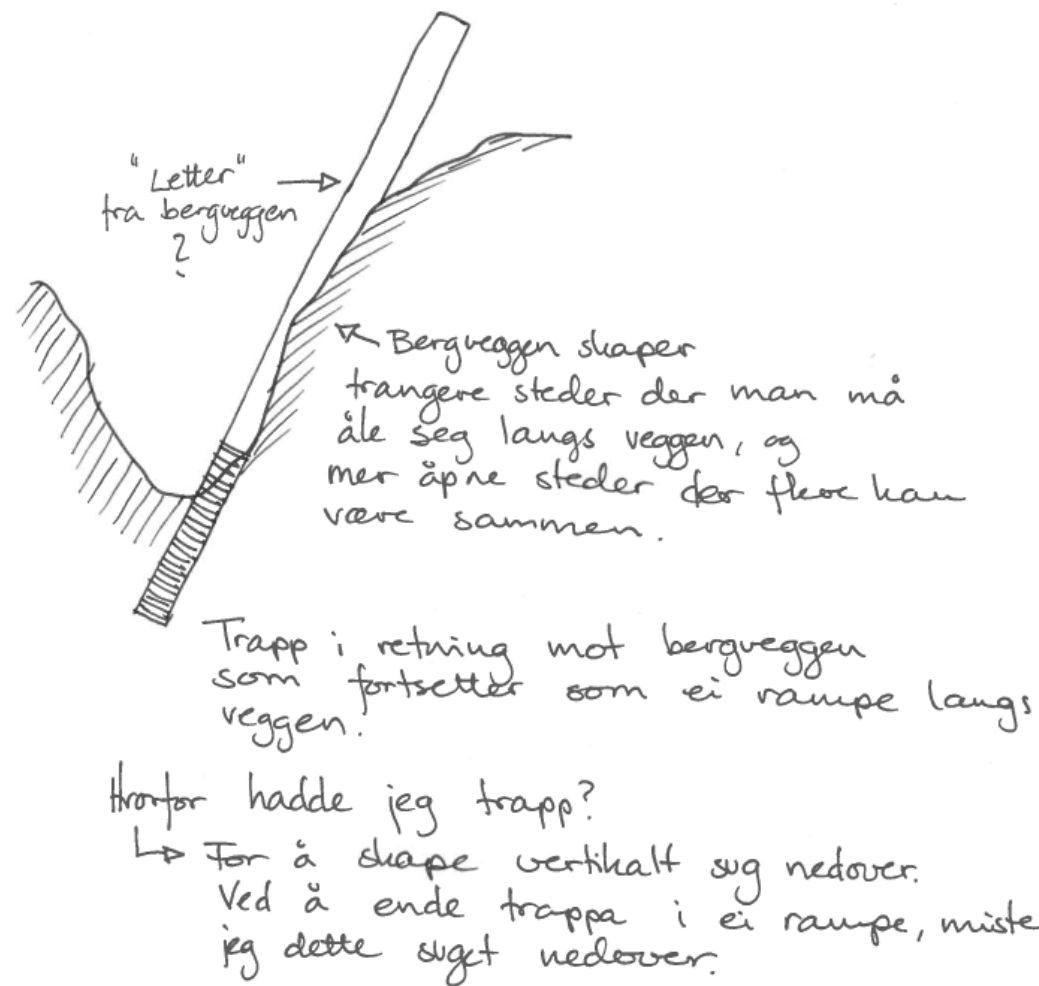 "Letter"
fra bergveggen
?
Bergveggen skaper
trangere steder der man må
åle seg langs veggen, og
mer åpne steder der flere kan
være sammen.
Trapp i retning mot bergveggen
som fortsetter som ei rampe langs
veggen.
Hvorfor hadde jeg trapp?
For å skape vertikalt sug nedover.
Ved å ende trappa i ei rampe, miste
jeg dette suget nedover.